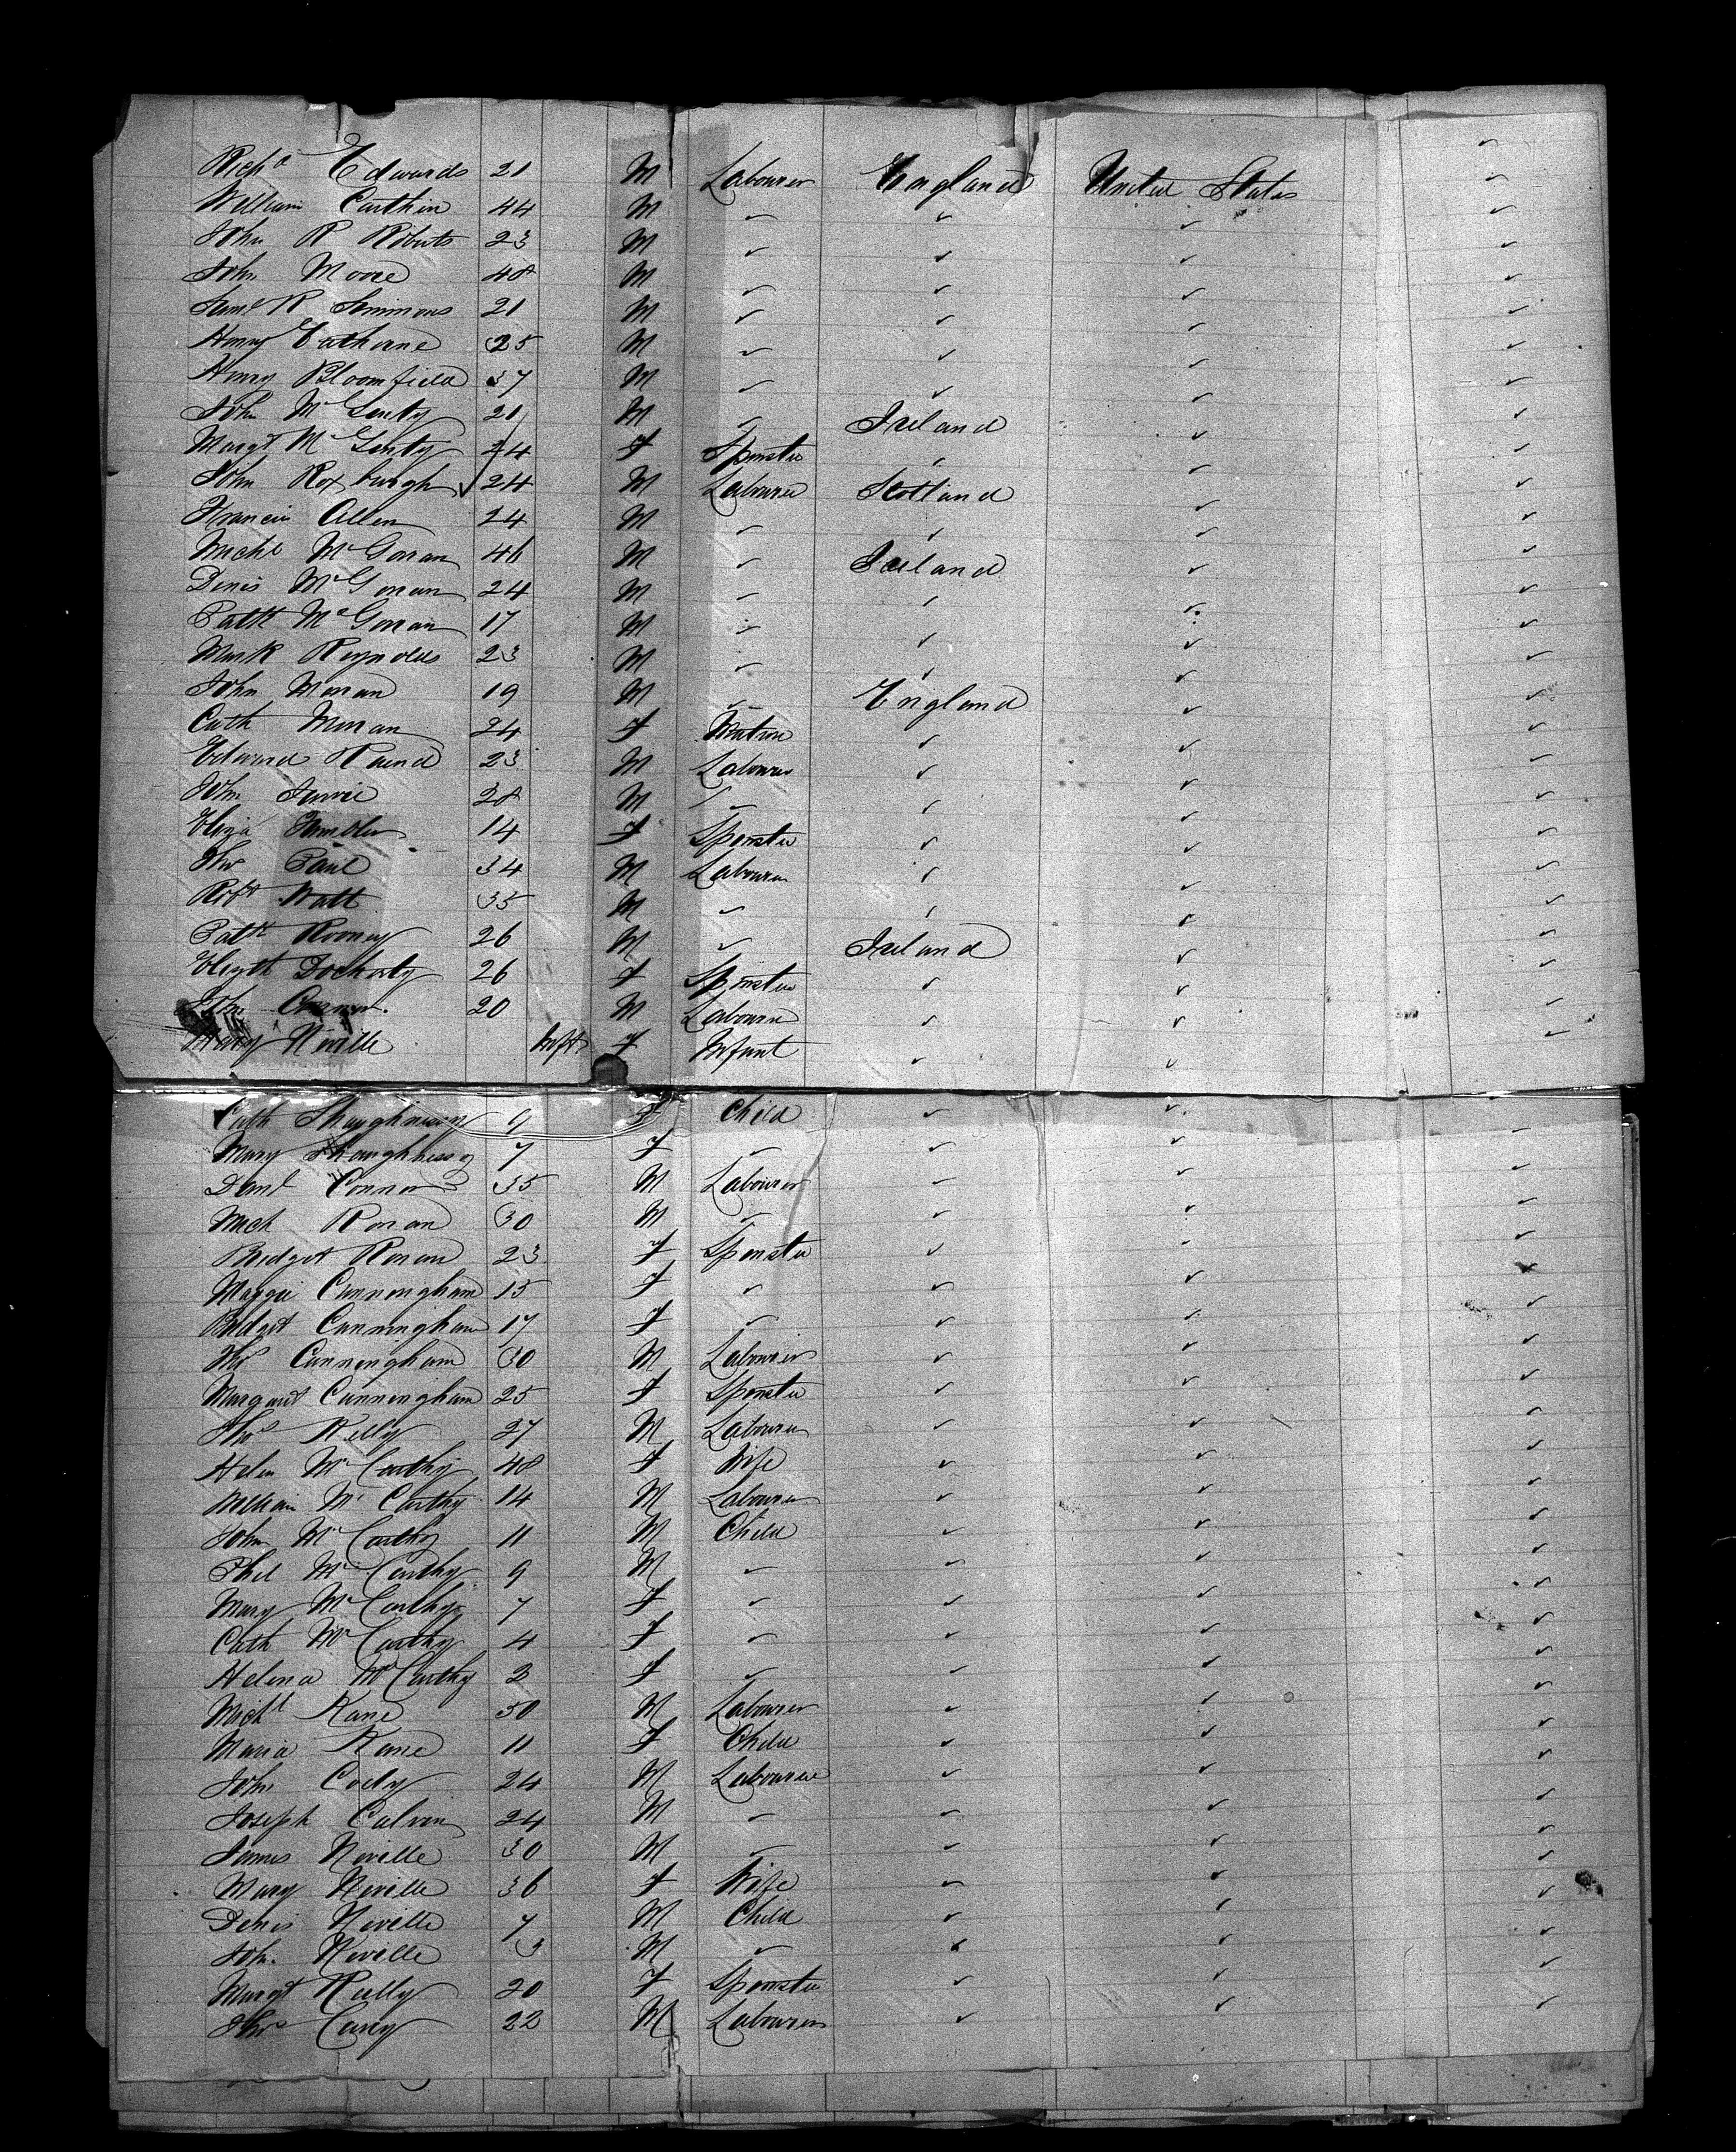 Richd Edwards 21 M Labourer England United States
William 44 M ✓ ✓ ✓
John R Roberts 23 M ✓ ✓ ✓
John Moore 48 M ✓ ✓ ✓
Saml R Simmons 21 M ✓ ✓ ✓
Henry 25 M ✓ ✓ ✓
Henry Bloomfield 37 M ✓ ✓ ✓
John McGinty 21 M ✓ Ireland ✓
Margt McGinty 24 F Spinster ✓ ✓
John Roxburgh 24 M Labourer Scotland ✓
Francis Allen 24 M ✓ ✓ ✓
Michl 46 M ✓ Ireland ✓
Denis 24 M ✓ ✓ ✓
Patk 17 M ✓ ✓ ✓
Mark Reynolds 23 M ✓ ✓ ✓
John Moran 19 M ✓ England ✓
Cath Moran 24 F Matron ✓ ✓
Edward Round 23 M Labourer ✓ ✓
John 28 M ✓ ✓ ✓
Eliza 14 F Spinster ✓ ✓
Thos Paul 34 M Labourer ✓ ✓
Robt Watt 35 M ✓ ✓ ✓
Patk Rooney 26 M ✓ Ireland ✓
Elizth Docherty 26 F Spinster ✓ ✓
20 M Labourer ✓ ✓
Mary Neville Inft F Infant ✓ ✓
Cath Shaughnessy 9 F Child ✓ ✓
Mary Shaughnessy 7 F ✓ ✓ ✓
Danl Connor 35 M Labourer ✓ ✓
Mich Ronan 30 M ✓ ✓ ✓
Bridget Ronan 23 F Spinster ✓ ✓
Maggie Cunningham 15 F ✓ ✓ ✓
Bridget Cunningham 17 F ✓ ✓ ✓
Thos Cunningham 30 M Labourer ✓ ✓
Margaret Cunningham 25 F Spinster ✓ ✓
Thos Kelly 27 M Labourer ✓ ✓
Helen McCarthy 48 F Wife ✓ ✓
William McCarthy 14 M Labourer ✓ ✓
John McCarthy 11 M Child ✓ ✓
Phil McCarthy 9 M ✓ ✓ ✓
Mary McCarthy 7 F ✓ ✓ ✓
Cath McCarthy 4 F ✓ ✓ ✓
Helena McCarthy 2 F ✓ ✓ ✓
Michl Kane 50 M Labourer ✓ ✓
Maria Kane 11 F Child ✓ ✓
John Cody 24 M Labourer ✓ ✓
Joseph Calvin 24 M ✓ ✓ ✓
James Neville 30 M ✓ ✓ ✓
Mary Neville 36 F Wife ✓ ✓
Denis Neville 7 M Child ✓ ✓
John Neville 3 M ✓ ✓ ✓
Margt Reilly 20 F Spinster ✓ ✓
Thos Carey 22 M Labourer ✓ ✓